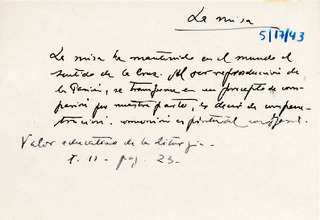 La misa
5/17/43
La misa ha mantenido en el mundo el
sentido de la Cruz. Al ser reproducción de
la Pasión, se transforma en un precepto de com-
pasión por nuestra parte, es decir de compene-
tración. comunión espiritual
Valor educativo de la liturgia -
t. II - pag. 23 -